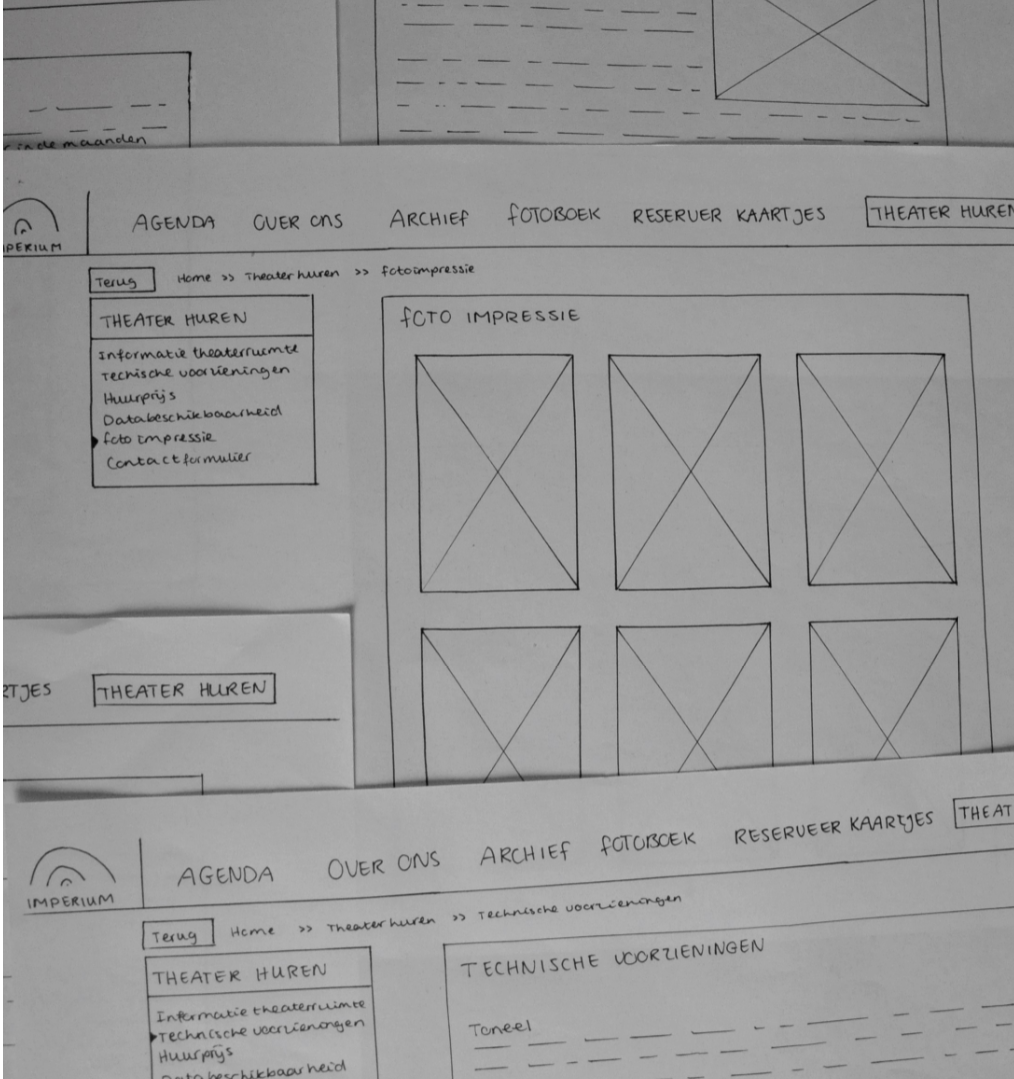 in de maanden
AGENDA OVER ONS ARCHIEF FOTOBOEK RESERVER KAARTJES THEATER HUREN
PERIUM
Terug Home >> Theater huren >> fotoimpressie
THEATER HUREN
Informatie theaterruimte
Technische voorzieningen
Huurprijs
Databeschikbaarheid
foto impressie
Contactformulier
FOTO IMPRESSIE
RTJES THEATER HUREN
IMPERIUM
AGENDA OVER ONS ARCHIEF FOTOBOEK RESERVEER KAARTJES THEAT
Terug Home >> Theater huren >> Technische voorzieningen
THEATER HUREN
Informatie theaterruimte
Technische voorzieningen
Huurprijs
Databeschikbaarheid
TECHNISCHE VOORZIENINGEN
Toneel